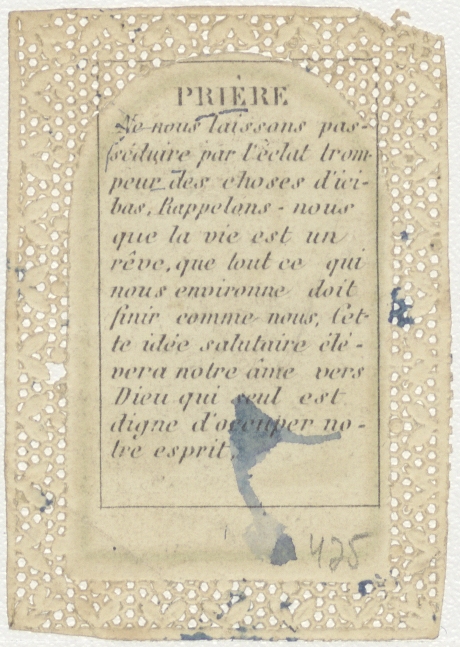 PRIÈRE
Ne nous laissons pas
séduire par l'éclat trom-
peur des choses d'ici-
bas, Rappelons-nous
que la vie est un
rêve, que tout ce qui
nous environne doit
finir comme nous, Cet-
te idée salutaire élé-
vera notre âme vers
Dieu qui seul est
digne d'occuper no-
tre esprit.
425